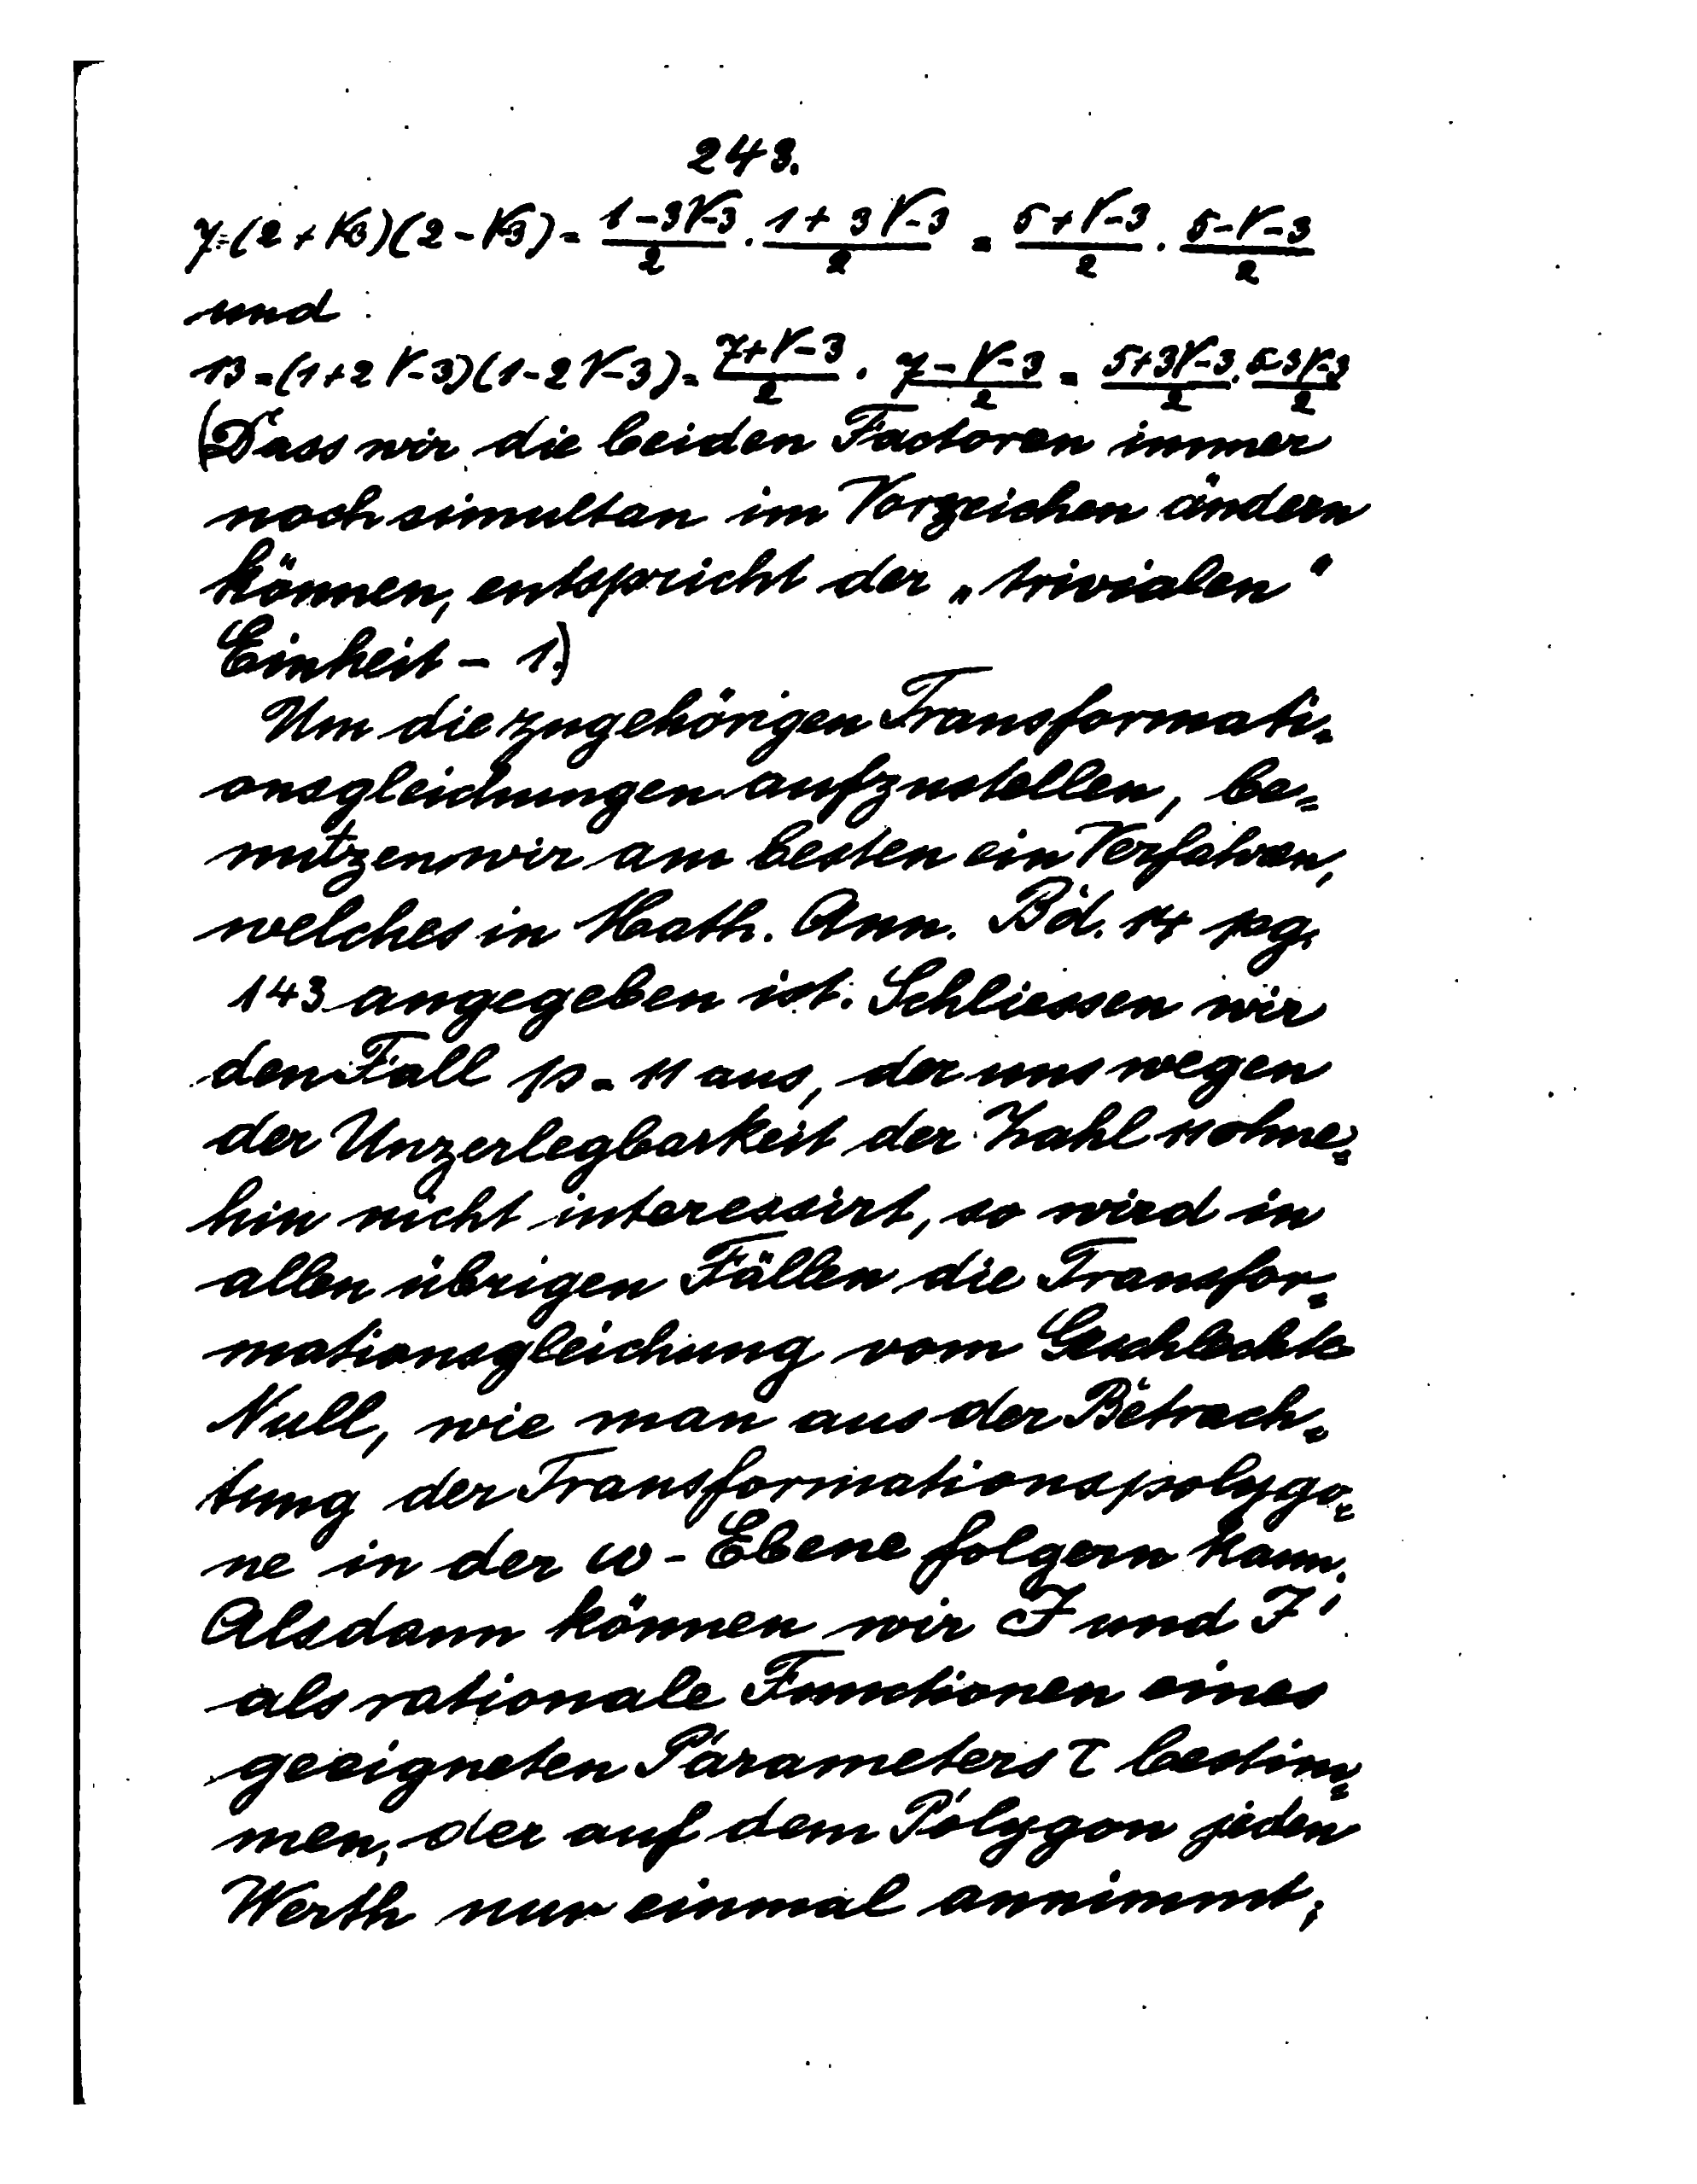 243.
7=(2+√-3)(2-√-3)= (1-3√-3)/2 · (1+3√-3)/2 = (5+√-3)/2 · (5-√-3)/2
und
13=(1+2√-3)(1-2√-3)= (7+√-3)/2 · (7-√-3)/2 = (5+3√-3)/2 · (5-3√-3)/2
(Dass wir die beiden Factoren immer
noch simultan im Vorzeichen ändern
können, entspricht der „trivialen“
Einheit - 1.)
Um die zugehörigen Transformati-
onsgleichungen aufzustellen, be-
nutzen wir am besten ein Verfahren,
welches in Math. Ann. Bd. 14 pg.
143 angegeben ist. Schliessen wir
den Fall p = 11 aus, der uns wegen
der Unzerlegbarkeit der Zahl 11 ohne-
hin nicht interessirt, so wird in
allen übrigen Fällen die Transfor-
mationsgleichung vom Geschlechte
Null, wie man aus der Betrach-
tung der Transformationspolygo-
ne in der ω-Ebene folgern kann.
Alsdann können wir J und J'
als rationale Functionen eines
geeigneten Parameters τ bestim-
men, der auf dem Polygon jeden
Werth nur einmal annimmt;